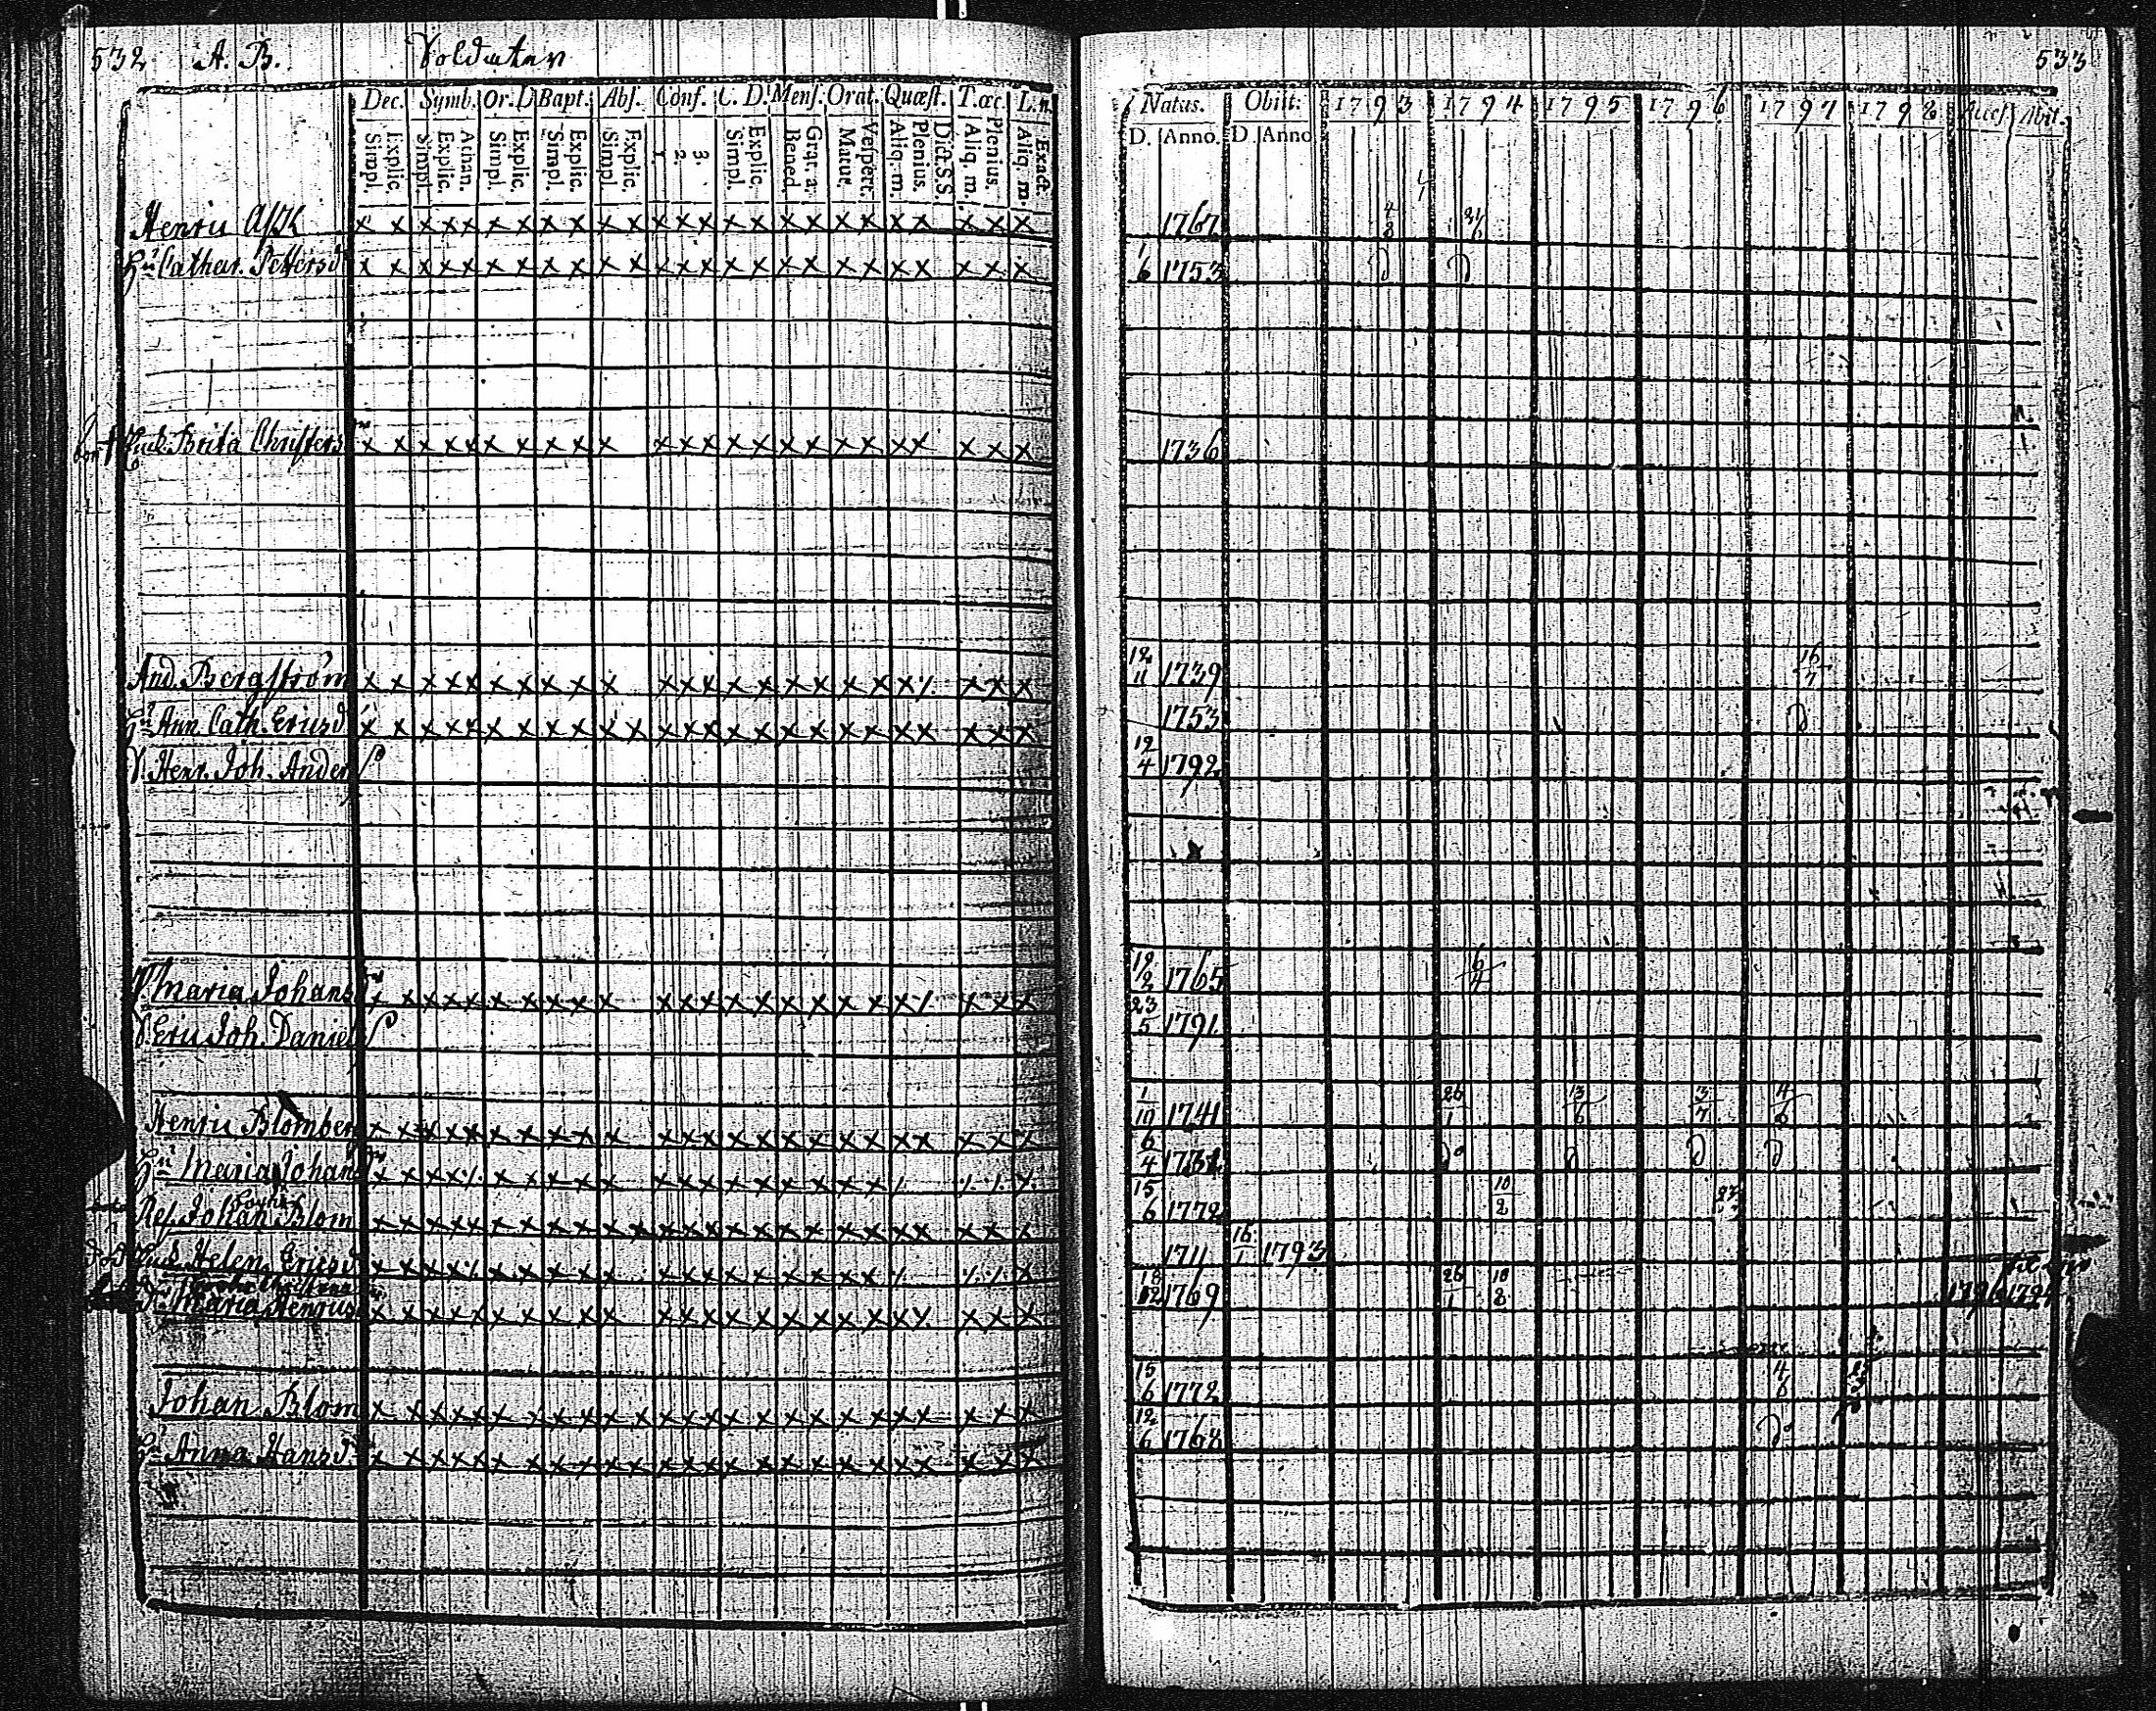 532 A. B. Soldater
Dec. Symb. Or. D Bapt. Abs. Conf. C. D. Mens. Orat. Quæst. T. œc. L. n.
Simpl. Explic. Simpl. Explic. Athan. Simpl. Explic. Simpl. Explic. Simpl. Explic. 1 2 3 Simpl. Explic. Bened. Grat. a. Matut. Vespert. Aliq. m. Plenius. Dict. S.S. Aliq. m. Plenius. Aliq. m. Exact.
Henric Ask x x x x x x x x x x x x x x x x x x x x x x x x x
Hu Cathar. Pettersd x x x x x x x x x x x x x x x x x x x x x x x x x
Enk. Brita Christers x x x x x x x x x x x x x x x x x x x x x x x x
And. Bergström x x x x x x x x x x x x x x x x x x x x x x x
Hu Ann. Cath. Ericsd x x x x x x x x x x x x x x x x x x x x x x x x x
S. Henr. Joh. Anders
Maria Johansd x x x x x x x x x x x x x x x x x x x x x x x
S. Eric Joh. Daniels
Henric Blomberg x x x x x x x x x x x x x x x x x x x x x x x x
Hu Maria Johansd x x x x x x x x x x x x x x x x x x
Ref. Johan Blom x x x x x x x x x x x x x x x x x x x x x x x x x
död Enk. Helen. Ericsd x x x x x x x x x x x x x x x x x x
Dr Maria Henricsd x x x x x x x x x x x x x x x x x x x x x x x x
Johan Blom x x x x x x x x x x x x x x x x x x x x x x x x x
Hu Anna Hansd x x x x x x x x x x x x x x x x x x x x x x x x x
533
Natus. Obiit: 1793 1794 1795 1796 1797 1798 Acces. Abit.
D. Anno. D. Anno
1767 4/8
1/6 1753
1736
12/11 1739 16/7
1753
12/4 1792
12/2 1765 6/4
23/5 1791
1/10 1741 26/1 13/6 3/7 4/6
6/4
15/6 1772 10/2
1711 16/1 1793
18/12 1769 26/1 10/8 1796
15/6 1772 4/6
12/6 1768